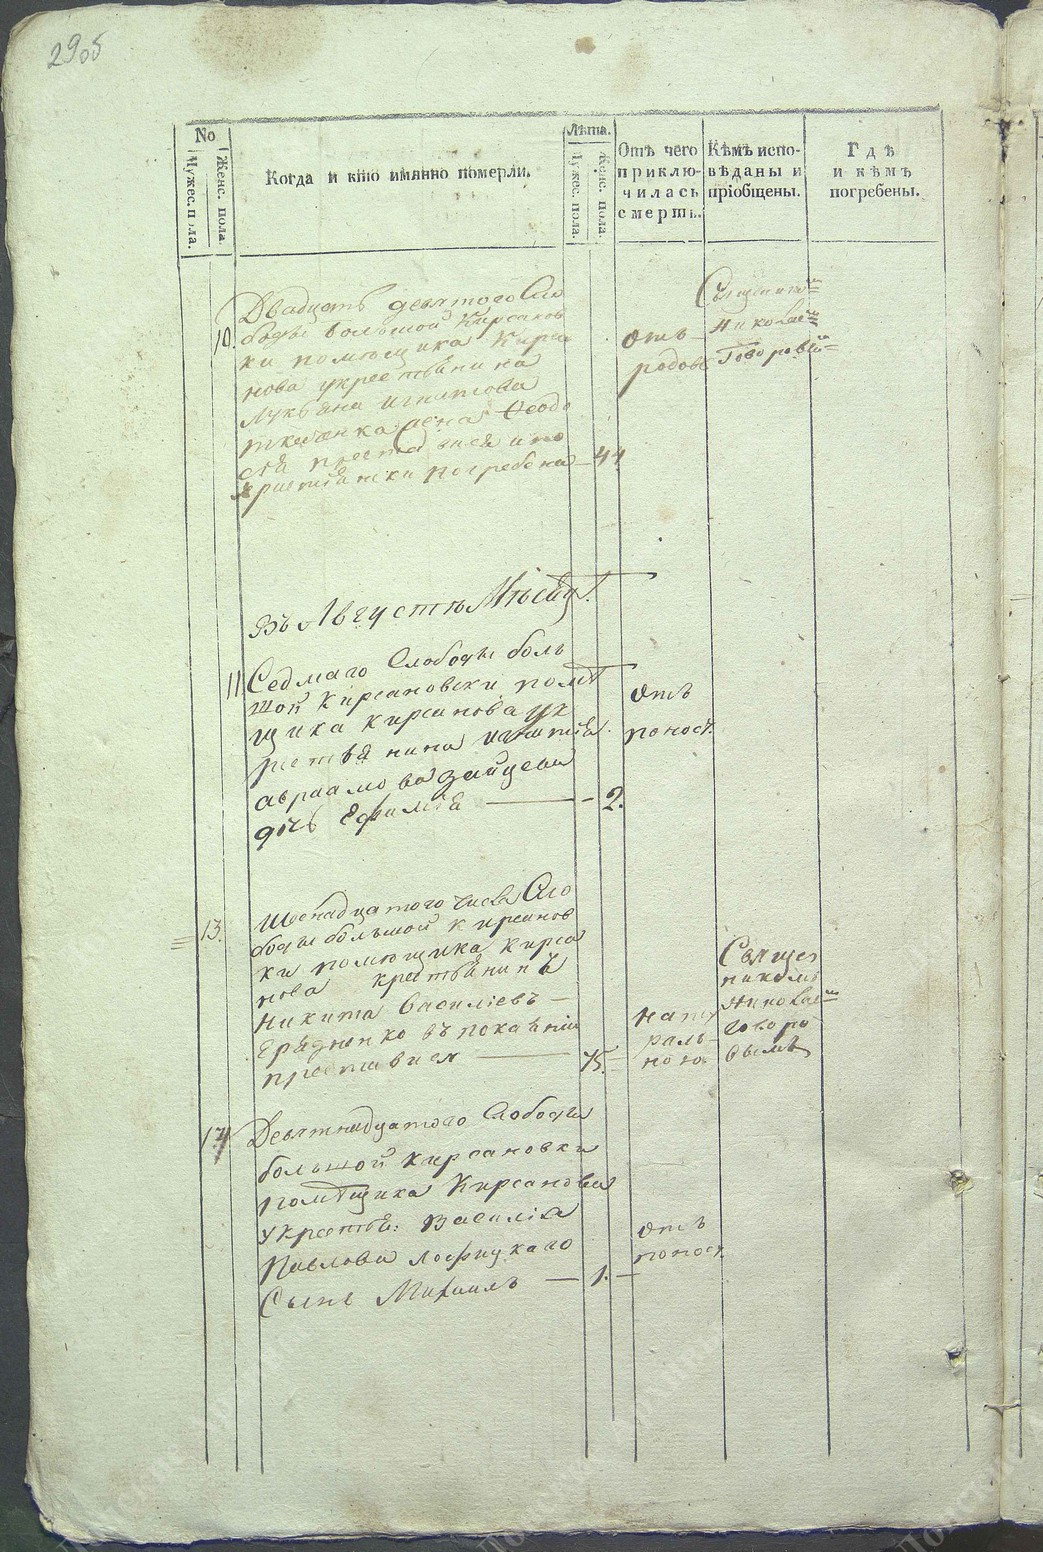 2905
No
Мужес. пола.
Женс. пола.
Когда и кто имянно померли.
Лѣта.
Мужес. пола.
Женс. пола.
Отъ чего
приклю-
чилась
смерть.
Кѣмъ испо-
вѣданы и
пріобщены.
Гдѣ
и кѣмъ
погребены.
10.
Двадцать девятого Сло
боды большой Кирсанов
ки помющика Кирса
нова укрестьянина
Лукьяна Игнатова
жена Феодо
сія преставися и по
христіянски погребена — 44
отъ
родовъ
Священни
Николае
Говоровы
Въ Августѣ Мѣсяцѣ.
11
Седмаго Слободы боль
шой Кирсановски помѣ
щика Кирсанова ук
рестьянина Игнатія
Авраамова Зайцева
дочь Ефимія — 2.
отъ
понос.
13.
Шестнадцатого числа Сло
боды большой Кирсанов
ки помющика Кирса
нова крестьянинъ
Никита Василіевъ —
въ покаяніи
преставися — 75.
нату
раль-
ною
Священ
никомъ
Николае
Говоро
вымъ
14
Девятнадцатого Слободы
большой Кирсановки
помѣщика Кирсанова
укрестья: Василія
Павлова
Сынъ Михаилъ — 1. —
отъ
понос.